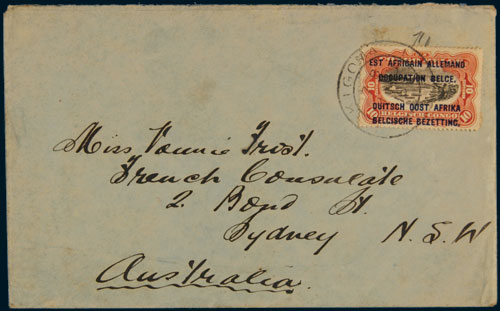 KIGOMA
EST AFRICAIN ALLEMAND
OCCUPATION BELGE.
DUITSCH OOST AFRIKA
BELGISCHE BEZETTING.
10 BELGISCH CONGO 10
Miss Vannie Frost.
French Consulate
2. Bond St.
Sydney N. S. W
Australia.